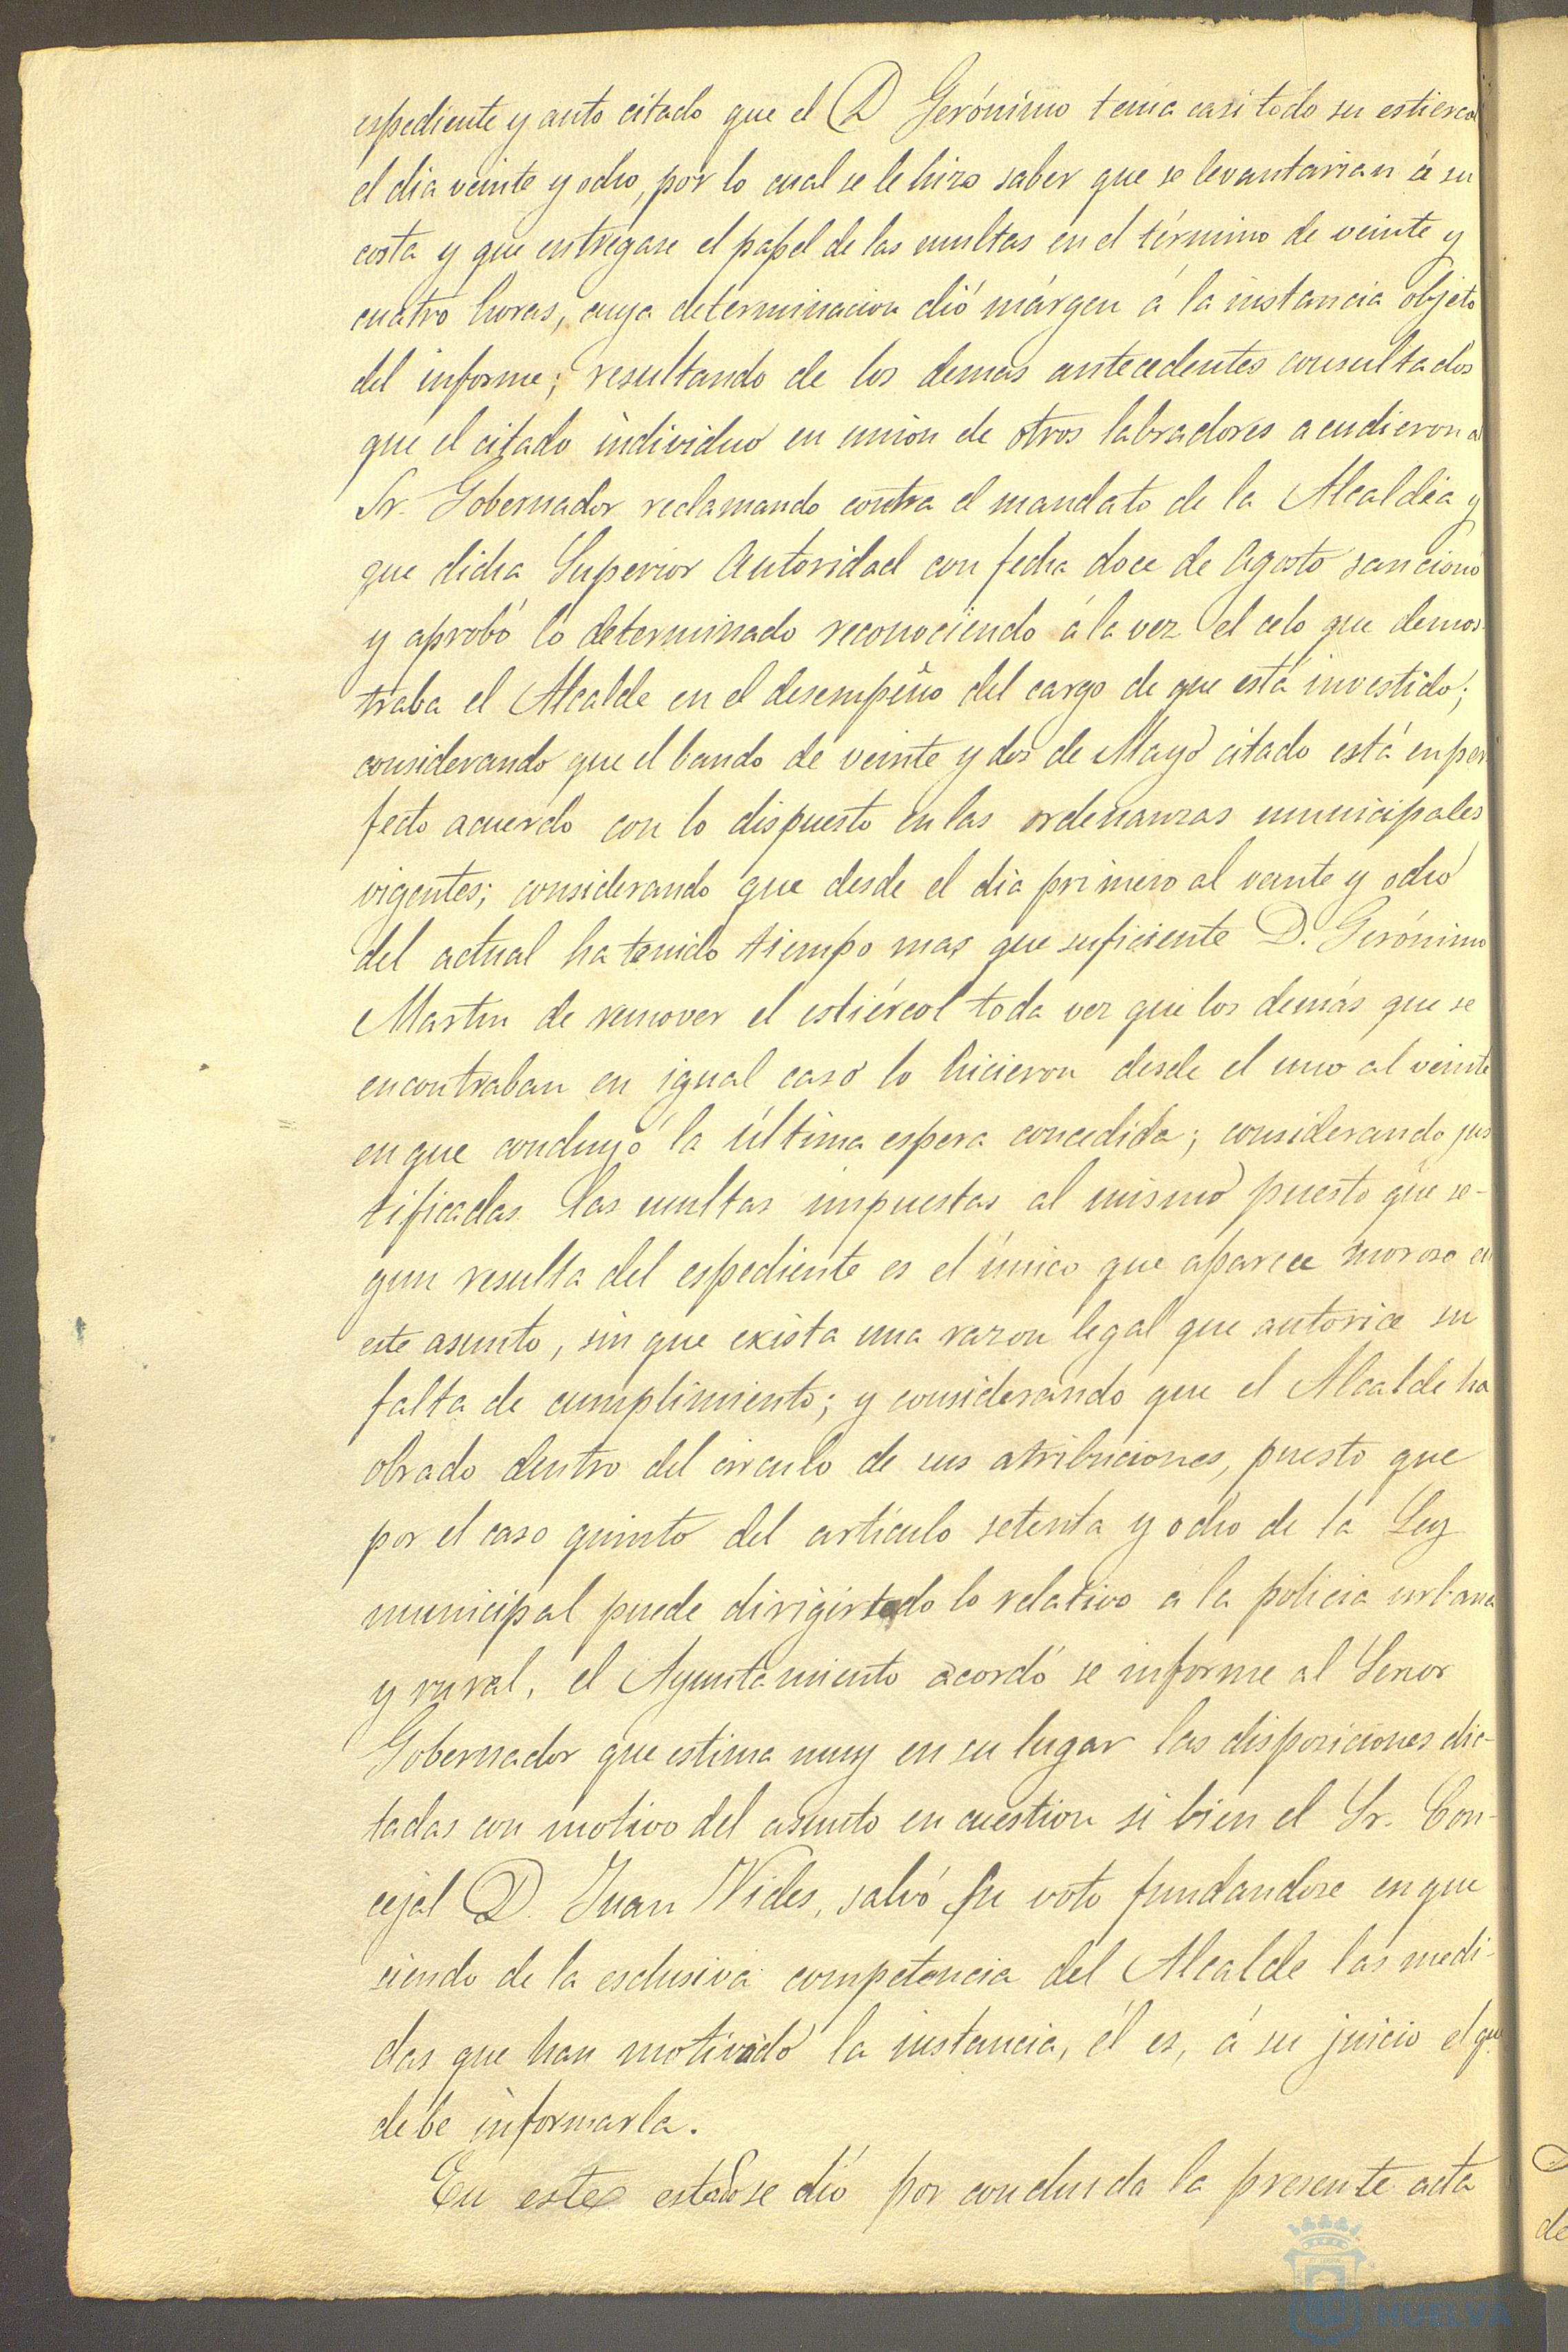 espediente y auto citado que el D Gerónimo tenia casi todo su estiercol
el dia veinte y ocho, por lo cual se le hizo saber que se levantarian á su
costa y que entregase el papel de las multas en el término de veinte y
cuatro horas, cuya determinacion dió márgen á la instancia objeto
del informe; resultando de los demas antecedentes consultados
que el citado individuo en union de otros labradores acudieron al
Sr. Gobernador reclamando contra el mandato de la Alcaldia y
que dicha Superior Autoridad con fecha doce de Agosto sancionó
y aprobó lo determinado reconociendo á la vez el celo que demos-
traba el Alcalde en el desempeño del cargo de que está investido;
considerando que el bando de veinte y dos de Mayo citado está en per
fecto acuerdo con lo dispuesto en las ordenanzas municipales
vigentes; considerando que desde el dia primero al veinte y ocho
del actual ha tenido tiempo mas que suficiente D. Gerónimo
Martin de remover el estiércol toda vez que los demás que se
encontraban en igual caso lo hicieron desde el uno al veinte
en que concluyó la última espera concedida; considerando jus
tificadas las multas impuestas al mismo puesto que se-
gun resulta del espediente es el único que aparece moroso en
este asunto, sin que exista una razon legal que autorice su
falta de cumplimiento; y considerando que el Alcalde ha
obrado dentro del circulo de sus atribuciones, puesto que
por el caso quinto del artículo setenta y ocho de la Ley
municipal puede dirigir todo lo relativo a la policia urbana
y rural, el Ayuntamiento acordó se informe al Señor
Gobernador que estima muy en su lugar las disposiciones dic-
tadas con motivo del asunto en cuestion si bien el Sr. Con-
cejal D. Juan Vides, salvó su voto fundandose en que
siendo de la esclusiva competencia del Alcalde las medi-
das que han motivado la instancia, él es, á su juicio el que
debe informarla.
En este estado se dió por concluida la presente acta
HUELVA